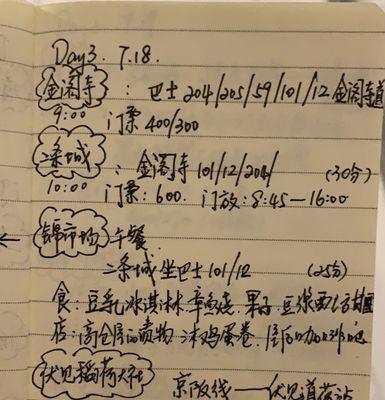 Day3. 7.18.
金阁寺 : 巴士 204/205/59/101/12 金阁寺道
9:00 门票 400/300
二条城 : 金阁寺 101/12/204/ (30分)
10:00 门票: 600. 门放: 8:45—16:00
← 锦市场 午餐
二条城坐巴士 101/12 (25分)
食: 豆乳冰淇淋 章鱼烧. 果子. 豆浆
店: 高仓屋 渍物 鸡蛋卷.
伏见稻荷大社 京阪线 — 伏见道